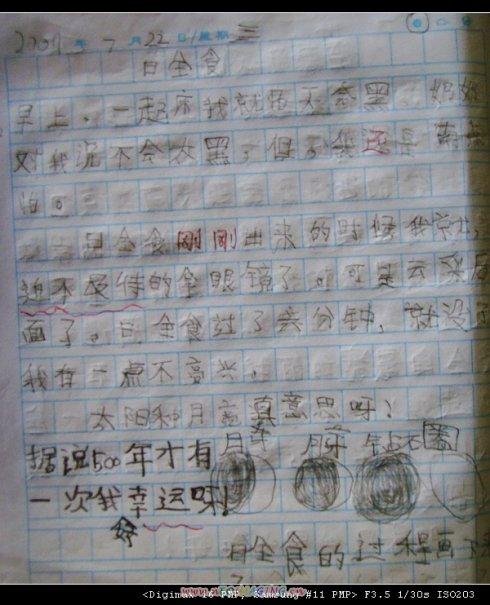 2009年7月22日星期三
日全食
早上,一起床我就怕天会黑,妈妈
对我说不会太黑,但我还是
怕。
日全食刚刚出来的时候我就
迫不及待的拿眼镜了。可是云
面了。日全食过了六分钟,就没
我有一点不高兴,
太阳和月亮真意思呀!
据说500年才有
一次我好幸运呀!
月 月牙 钻石圈
日全食的过程画下
<Digimax i6 PMP, Samsung #11 PMP> F3.5 1/30s ISO203